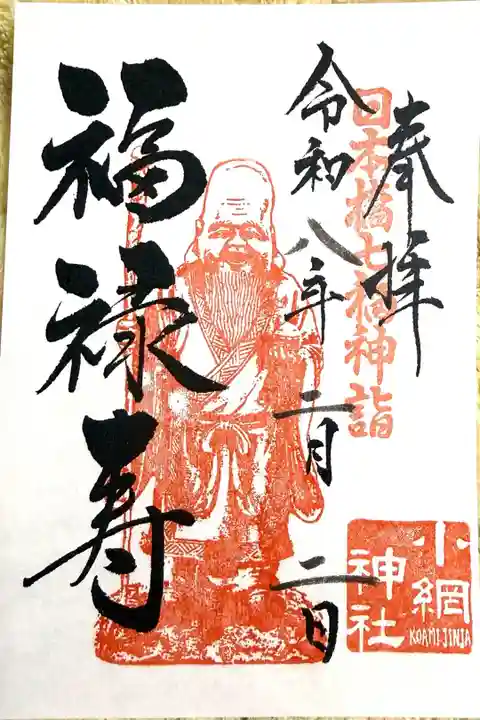 奉拝
日本橋七福神詣
令和八年二月二日
福禄寿
小網
神社
KOAMIJINJA